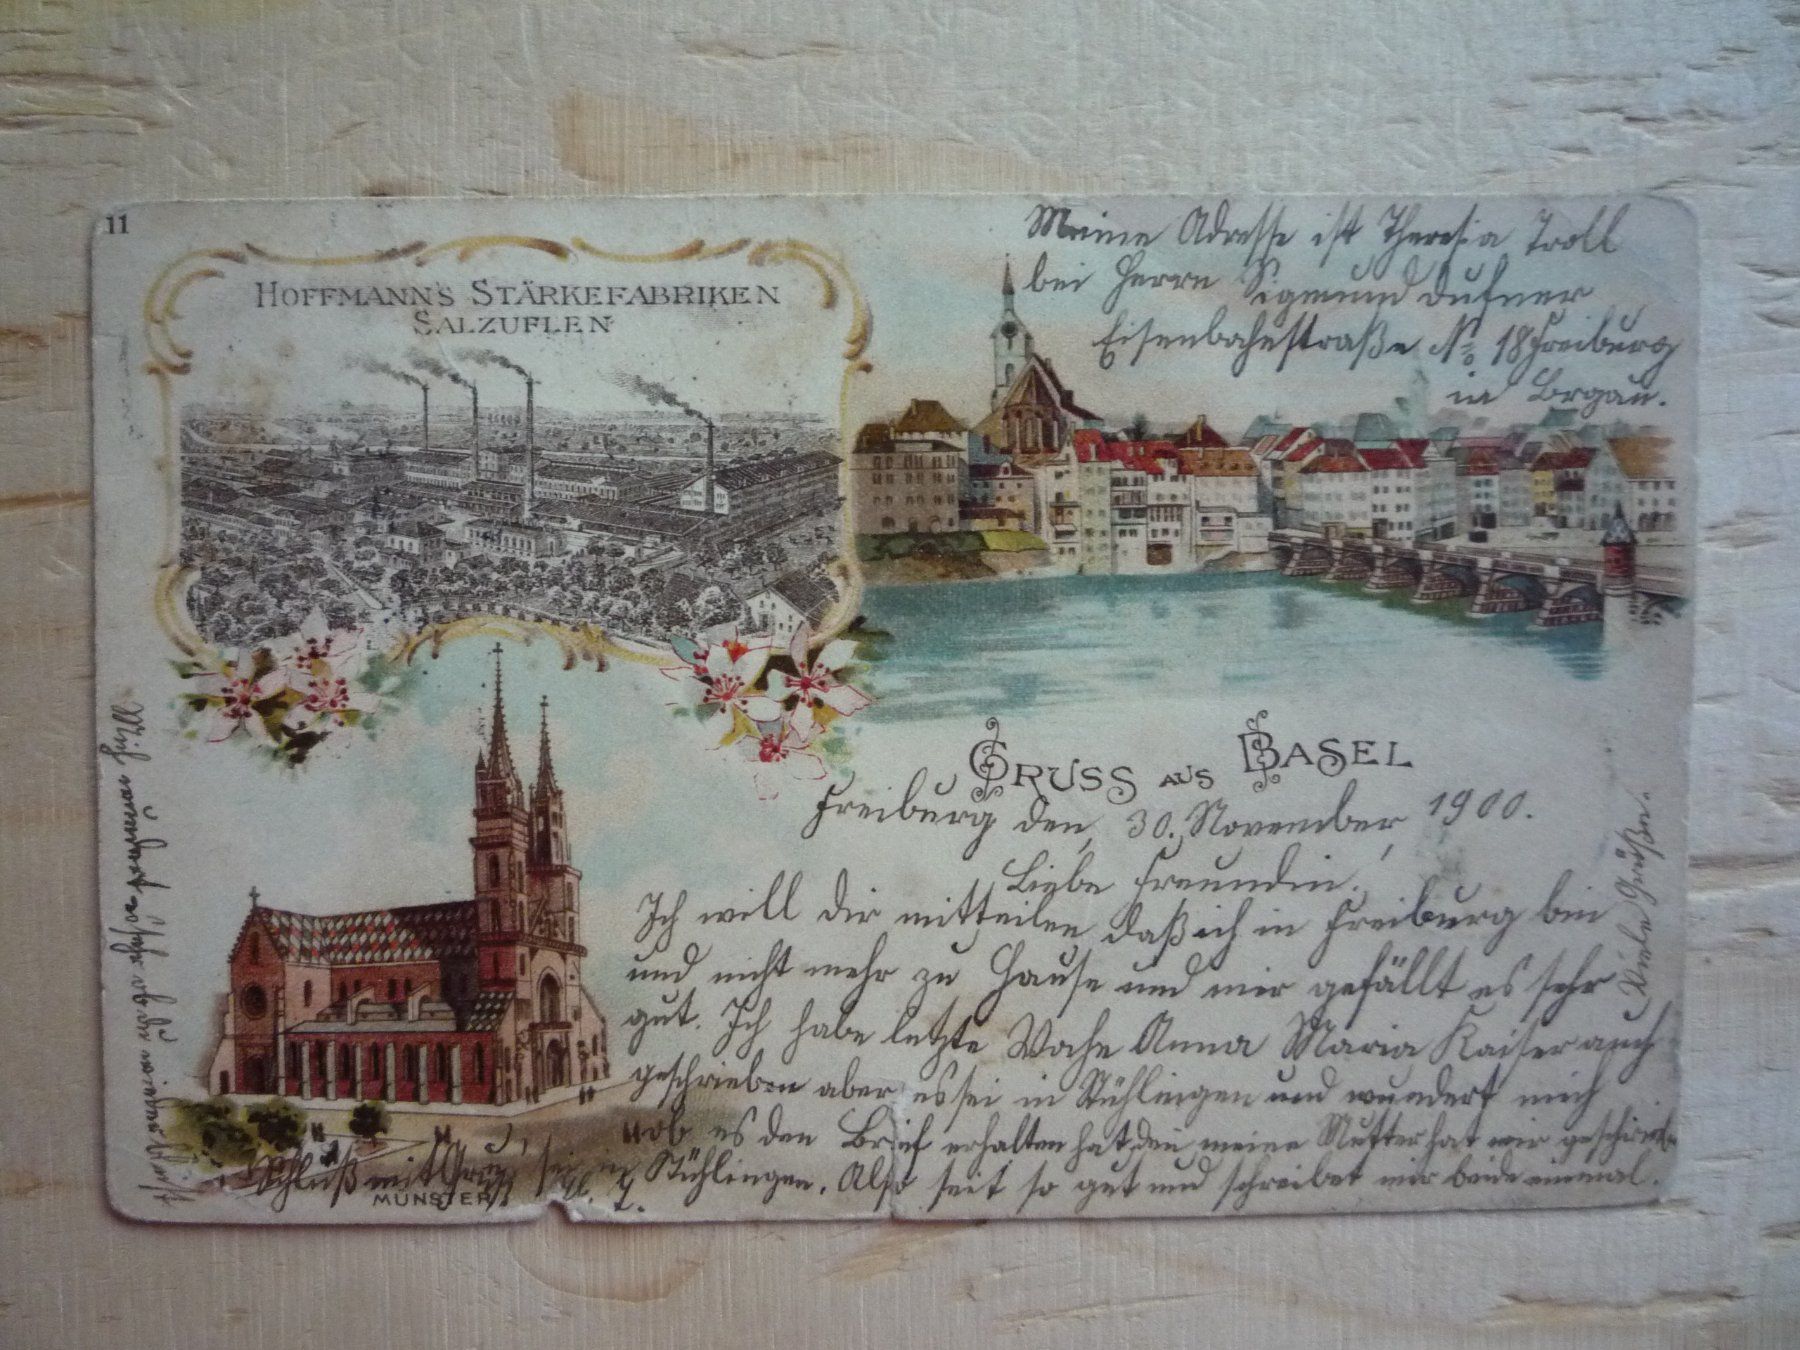 11
HOFFMANN'S STÄRKEFABRIKEN
SALZUFLEN
Meine Adresse ist Theresia Troll
bei Herrn Sigmund Dufner
Eisenbahnstraße No 18 Freiburg
in Brgau.
GRUSS AUS BASEL
Freiburg den, 30. November, 1900.
Liebe Freundin.
Ich will dir mitteilen daß ich in Freiburg bin
und nicht mehr zu Hause und mir gefällt es sehr
gut. Ich habe letzte Woche Anna Maria Kaiser auch
geschrieben aber es sei in Stühlingen und wundert mich
ob es den Brief erhalten hat den meine Mutter hat mir geschrieben
sei in Stühlingen. Also seit so gut und schreibet mir beide einmal.
Schluß mit Gruß
MÜNSTER
Viele Grüße.